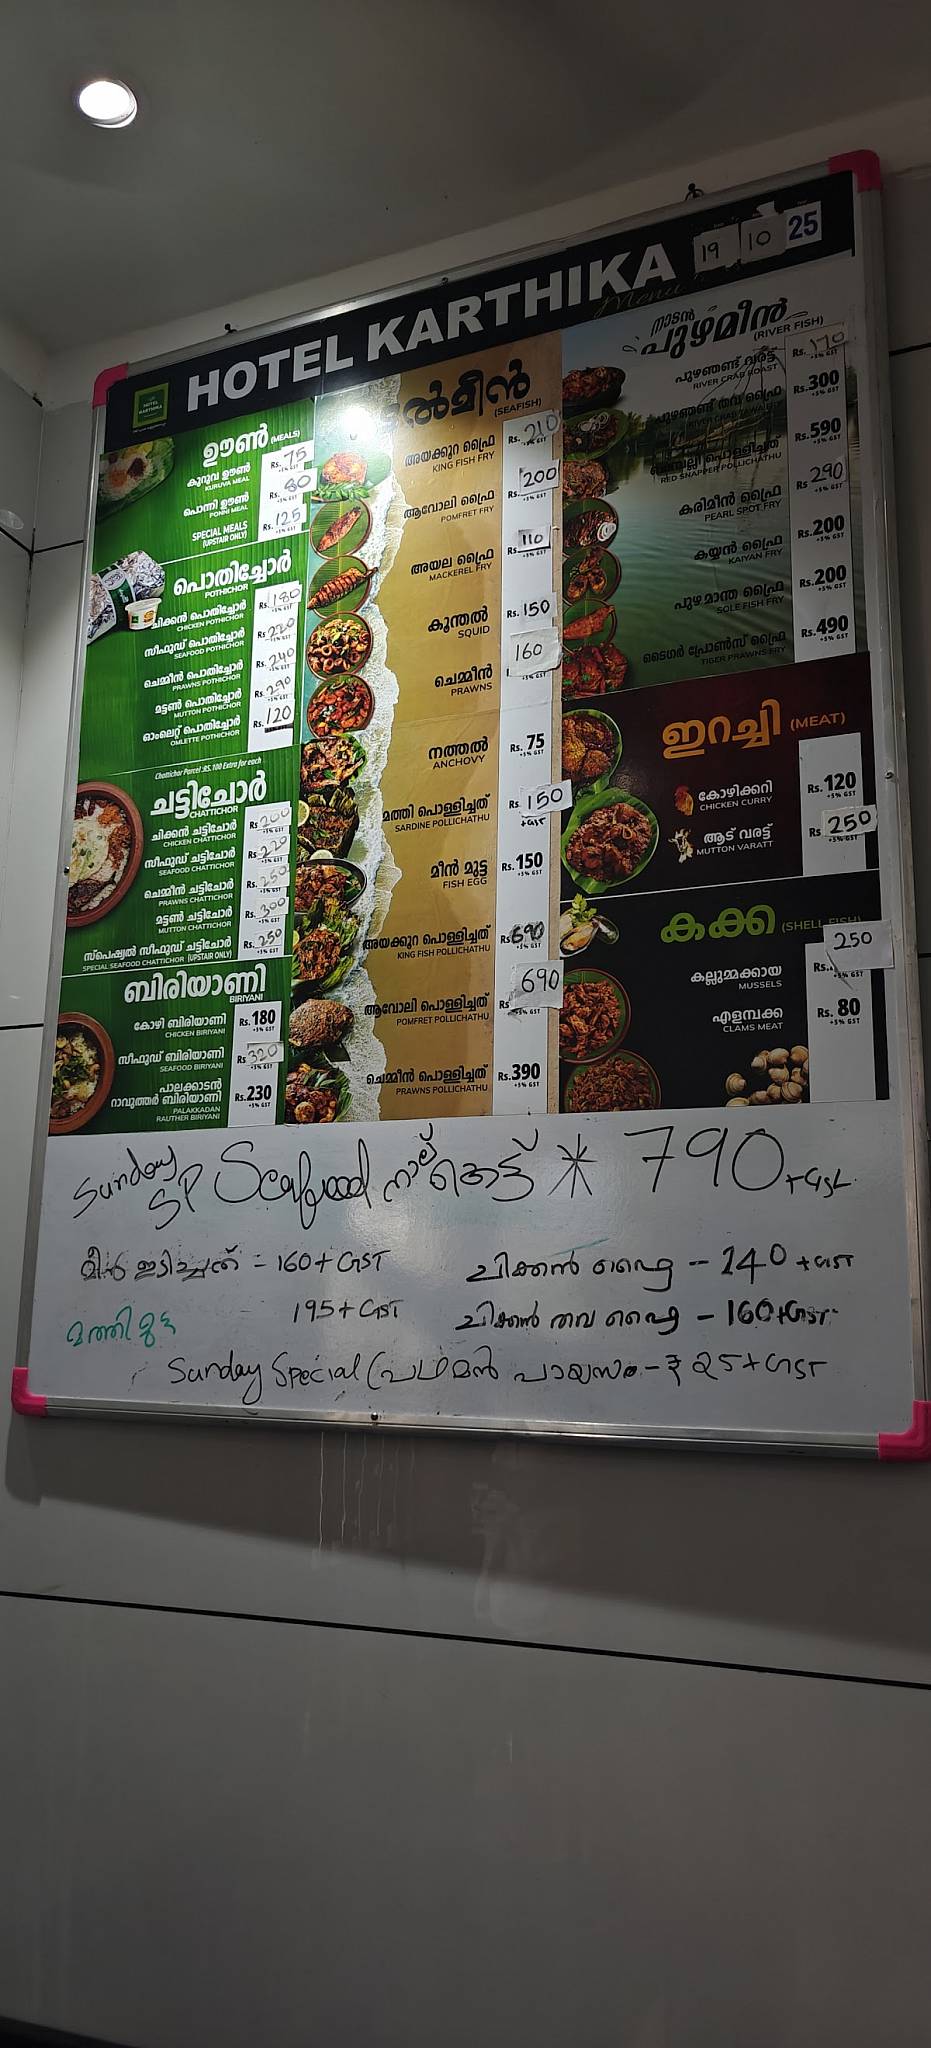 HOTEL KARTHIKA
Menu
19 10 25
HOTEL KARTHIKA
ഊൺ (MEALS)
കുറുവ ഊൺ Rs. 75
KURUVA MEAL +5% GST
പൊന്നി ഊൺ Rs. 80
PONNI MEAL +5% GST
SPECIAL MEALS Rs. 125
(UPSTAIR ONLY) +5% GST
പൊതിച്ചോർ
POTHICHOR
ചിക്കൻ പൊതിച്ചോർ Rs. 180
CHICKEN POTHICHOR +5% GST
സീഫുഡ് പൊതിച്ചോർ Rs. 220
SEAFOOD POTHICHOR +5% GST
ചെമ്മീൻ പൊതിച്ചോർ Rs. 240
PRAWNS POTHICHOR +5% GST
മട്ടൺ പൊതിച്ചോർ Rs. 290
MUTTON POTHICHOR +5% GST
ഓംലെറ്റ് പൊതിച്ചോർ Rs. 120
OMLETTE POTHICHOR
Chattichor Parcel :RS. 100 Extra for each
ചട്ടിച്ചോർ
CHATTICHOR
ചിക്കൻ ചട്ടിചോർ Rs. 200
CHICKEN CHATTICHOR +5% GST
സീഫുഡ് ചട്ടിചോർ Rs. 220
SEAFOOD CHATTICHOR +5% GST
ചെമ്മീൻ ചട്ടിചോർ Rs. 250
PRAWNS CHATTICHOR +5% GST
മട്ടൺ ചട്ടിചോർ Rs. 300
MUTTON CHATTICHOR +5% GST
സ്പെഷ്യൽ സീഫുഡ് ചട്ടിചോർ Rs. 250
SPECIAL SEAFOOD CHATTICHOR (UPSTAIR ONLY) +5% GST
ബിരിയാണി
BIRIYANI
കോഴി ബിരിയാണി Rs. 180
CHICKEN BIRIYANI +5% GST
സീഫുഡ് ബിരിയാണി Rs. 320
SEAFOOD BIRIYANI +5% GST
പാലക്കാടൻ
റാവുത്തർ ബിരിയാണി Rs. 230
PALAKKADAN +5% GST
RAUTHER BIRIYANI
കടൽമീൻ
(SEAFISH)
അയക്കൂറ ഫ്രൈ Rs. 210
KING FISH FRY +5% GST
ആവോലി ഫ്രൈ 200
POMFRET FRY +5% GST
അയല ഫ്രൈ 110
MACKEREL FRY +5% GST
കൂന്തൽ Rs. 150
SQUID +5% GST
ചെമ്മീൻ 160
PRAWNS +5% GST
നത്തൽ Rs. 75
ANCHOVY +5% GST
മത്തി പൊള്ളിച്ചത് Rs. 150
SARDINE POLLICHATHU +GST
മീൻ മുട്ട Rs. 150
FISH EGG +5% GST
അയക്കൂറ പൊള്ളിച്ചത് Rs. 690
KING FISH POLLICHATHU +5% GST
ആവോലി പൊള്ളിച്ചത് Rs 690
POMFRET POLLICHATHU +5% GST
ചെമ്മീൻ പൊള്ളിച്ചത് Rs. 390
PRAWNS POLLICHATHU +5% GST
നാടൻ
പുഴമീൻ
(RIVER FISH)
പുഴഞണ്ട് വരട്ട് Rs. 170
RIVER CRAB ROAST +5% GST
പുഴഞണ്ട് തവ ഫ്രൈ Rs. 300
RIVER CRAB TAWA FRY +5% GST
പൊള്ളിച്ചത് Rs. 590
RED SNAPPER POLLICHATHU +5% GST
കരിമീൻ ഫ്രൈ Rs. 290
PEARL SPOT FRY +5% GST
കയ്യൻ ഫ്രൈ Rs. 200
KAIYAN FRY +5% GST
പുഴ മാന്ത ഫ്രൈ Rs. 200
SOLE FISH FRY +5% GST
ടൈഗർ പ്രോൺസ് ഫ്രൈ Rs. 490
TIGER PRAWNS FRY +5% GST
ഇറച്ചി (MEAT)
കോഴിക്കറി Rs. 120
CHICKEN CURRY +5% GST
ആട് വരട്ട് Rs 250
MUTTON VARATT +5% GST
കക്ക (SHELL FISH)
കല്ലുമ്മക്കായ Rs. 250
MUSSELS +5% GST
എളമ്പക്ക Rs. 80
CLAMS MEAT +5% GST
Sunday SP Seafood നാല് കെട്ട് * 790 +GST
മീൻ ഇടിച്ചത് - 160 + GST
മത്തി മുട്ട 195 + GST
ചിക്കൻ ഫ്രൈ - 240 + GST
ചിക്കൻ തവ ഫ്രൈ - 160 + GST
Sunday Special (പഥമൻ പായസം - ₹ 25 + GST